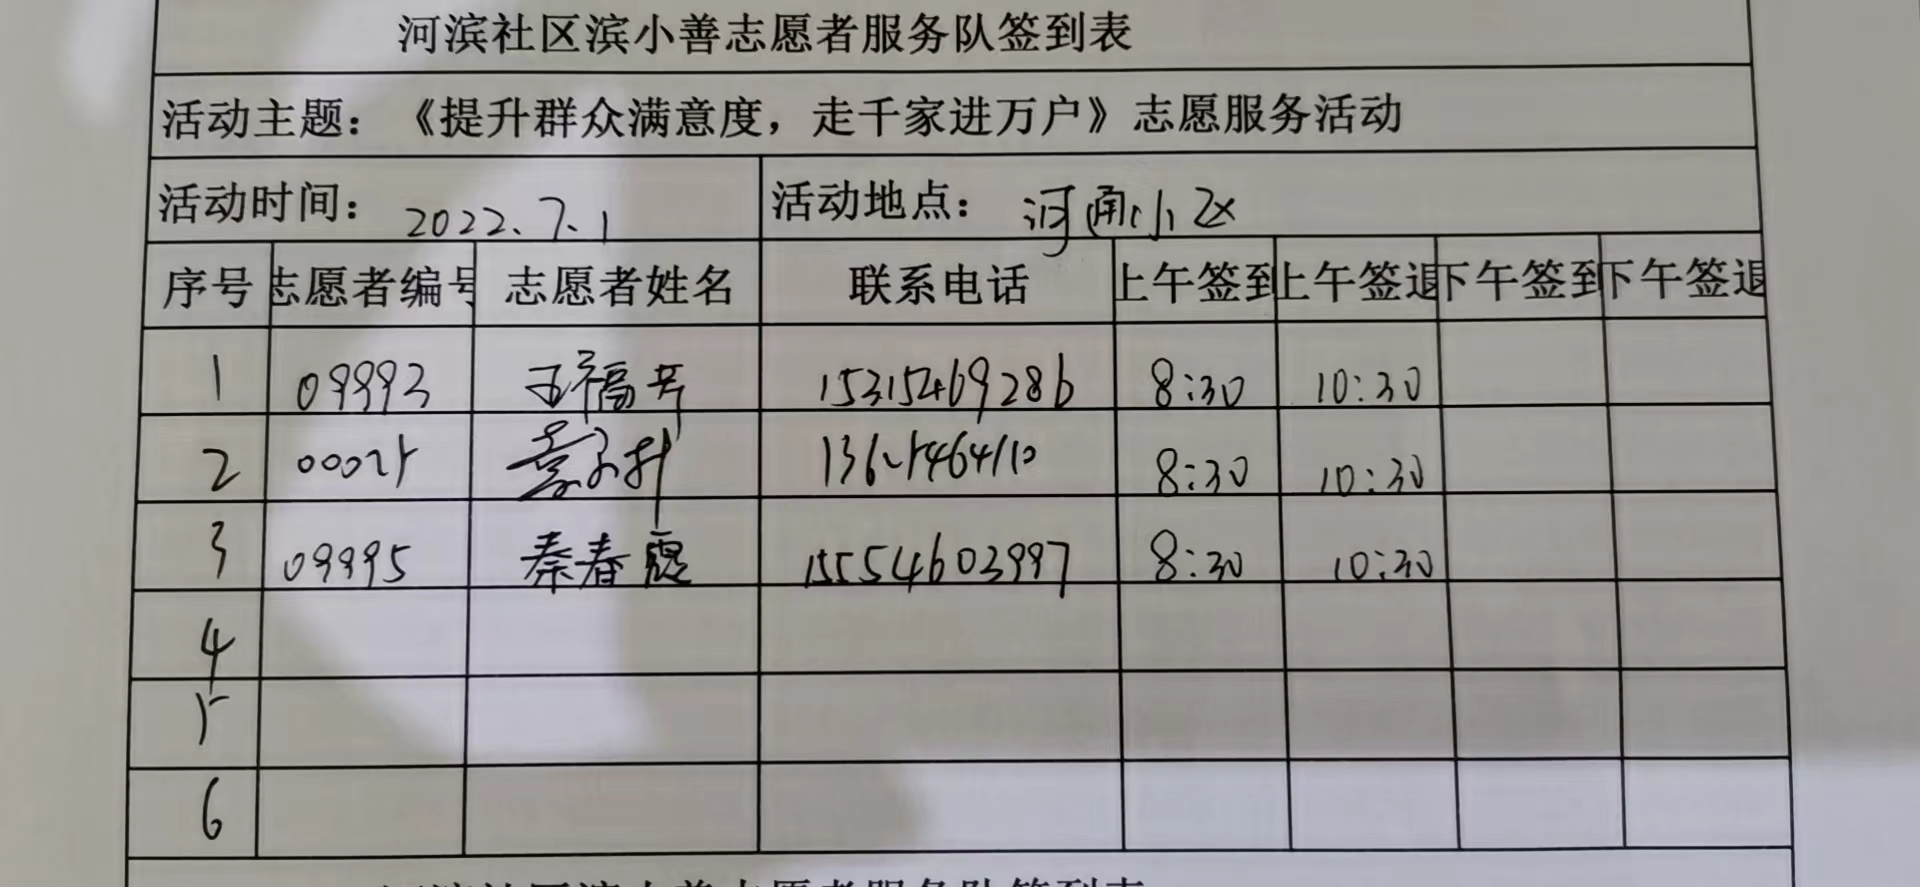 河滨社区滨小善志愿者服务队签到表
活动主题：《提升群众满意度，走千家进万户》志愿服务活动
活动时间：2022.7.1 活动地点：河南小区
序号 志愿者编号 志愿者姓名 联系电话 上午签到 上午签退 下午签到 下午签退
1 09993 王福芳 15315469286 8:30 10:30
2 00025 8:30 10:30
3 09995 秦春霞 15554603997 8:30 10:30
4
5
6
河滨社区滨小善志愿者服务队签到表